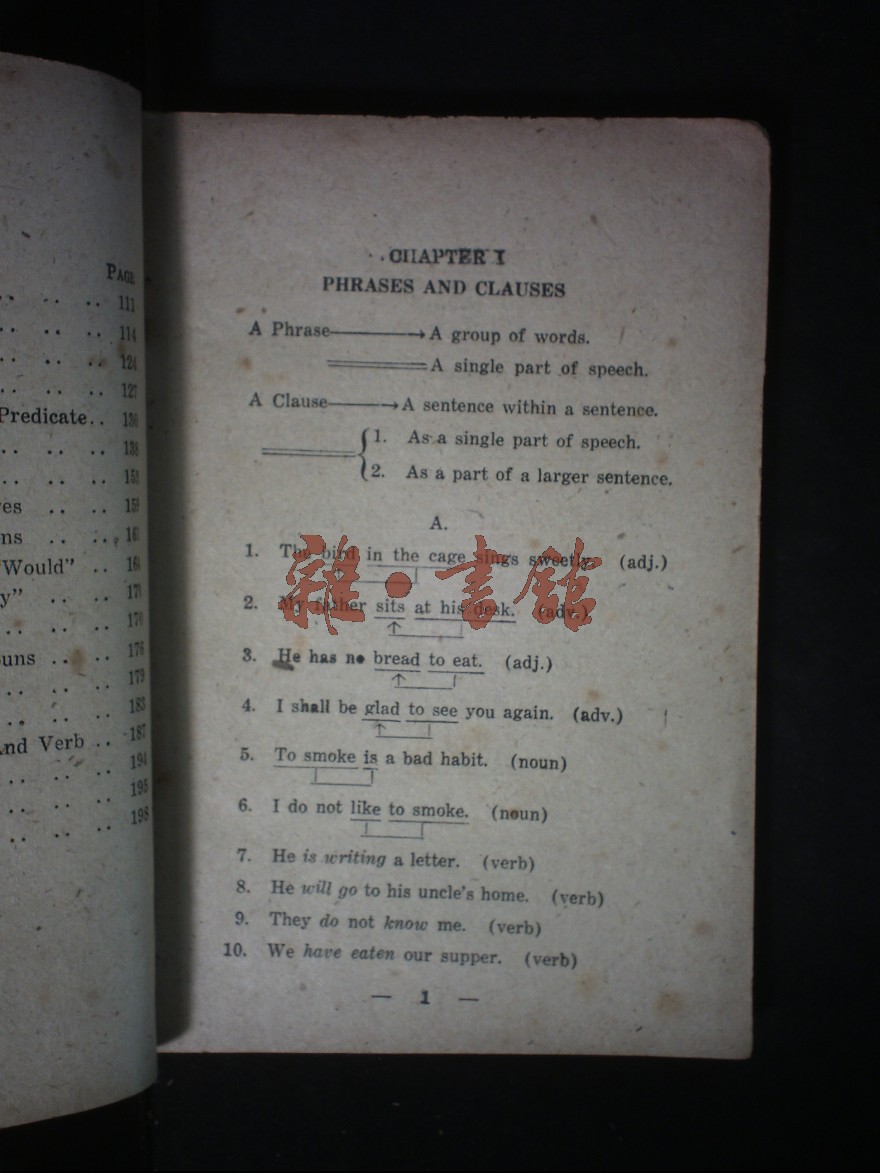 PAGE
111
114
124
127
Predicate.. 130
138
153
es .. .. 159
ns .. .. 161
"Would" ..
y" .. ..
170
uns .. .. 176
179
183
And Verb .. 187
194
195
198
CHAPTER I
PHRASES AND CLAUSES
A Phrase → A group of words.
A single part of speech.
A Clause → A sentence within a sentence.
1. As a single part of speech.
2. As a part of a larger sentence.
A.
1. The bird in the cage sings sweetly. (adj.)
2. My father sits at his desk. (adv.)
3. He has no bread to eat. (adj.)
4. I shall be glad to see you again. (adv.)
5. To smoke is a bad habit. (noun)
6. I do not like to smoke. (noun)
7. He is writing a letter. (verb)
8. He will go to his uncle's home. (verb)
9. They do not know me. (verb)
10. We have eaten our supper. (verb)
— 1 —
雜·書館